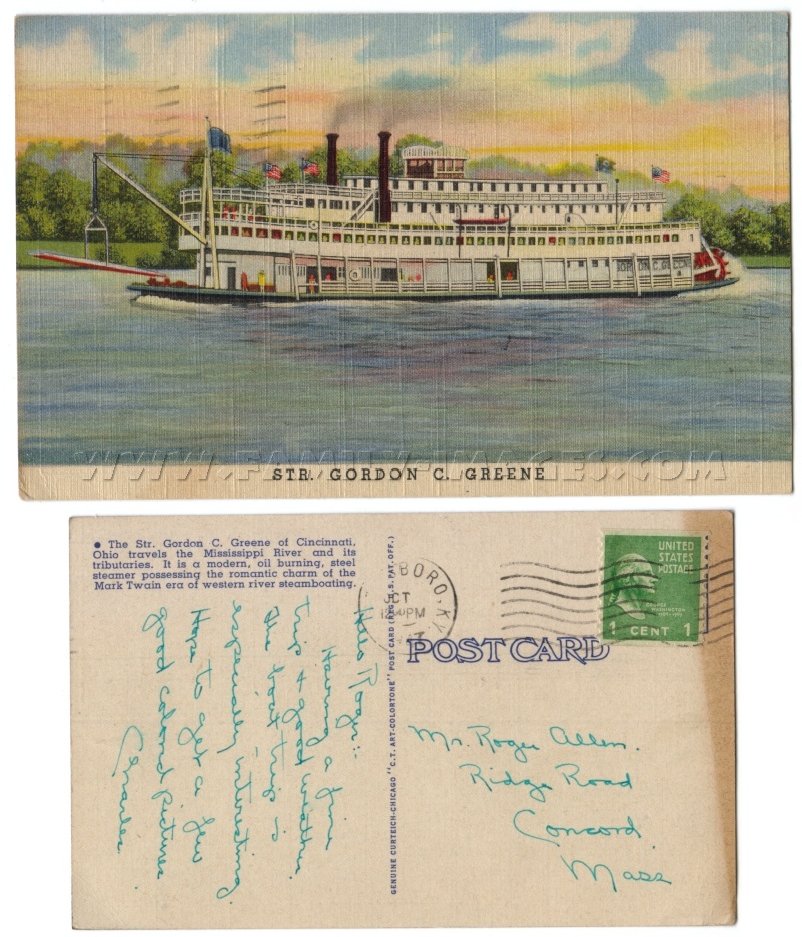 GORDON C. GREENE
WWW.FAMILY-IMAGES.COM
STR. GORDON C. GREENE
• The Str. Gordon C. Greene of Cincinnati,
Ohio travels the Mississippi River and its
tributaries. It is a modern, oil burning, steel
steamer possessing the romantic charm of the
Mark Twain era of western river steamboating.
BORO, KY.
OCT
PM
UNITED
STATES
POSTAGE
GEORGE
WASHINGTON
1 CENT 1
POST CARD
GENUINE CURTEICH-CHICAGO "C. T. ART-COLORTONE" POST CARD (REG. U. S. PAT. OFF.)
Hello Roger:-
Having a fine
trip & good weather.
The boat trip is
especially interesting.
Hope to get a few
good colored pictures
Charles
Mr. Roger Allen.
Ridge Road
Concord
Mass